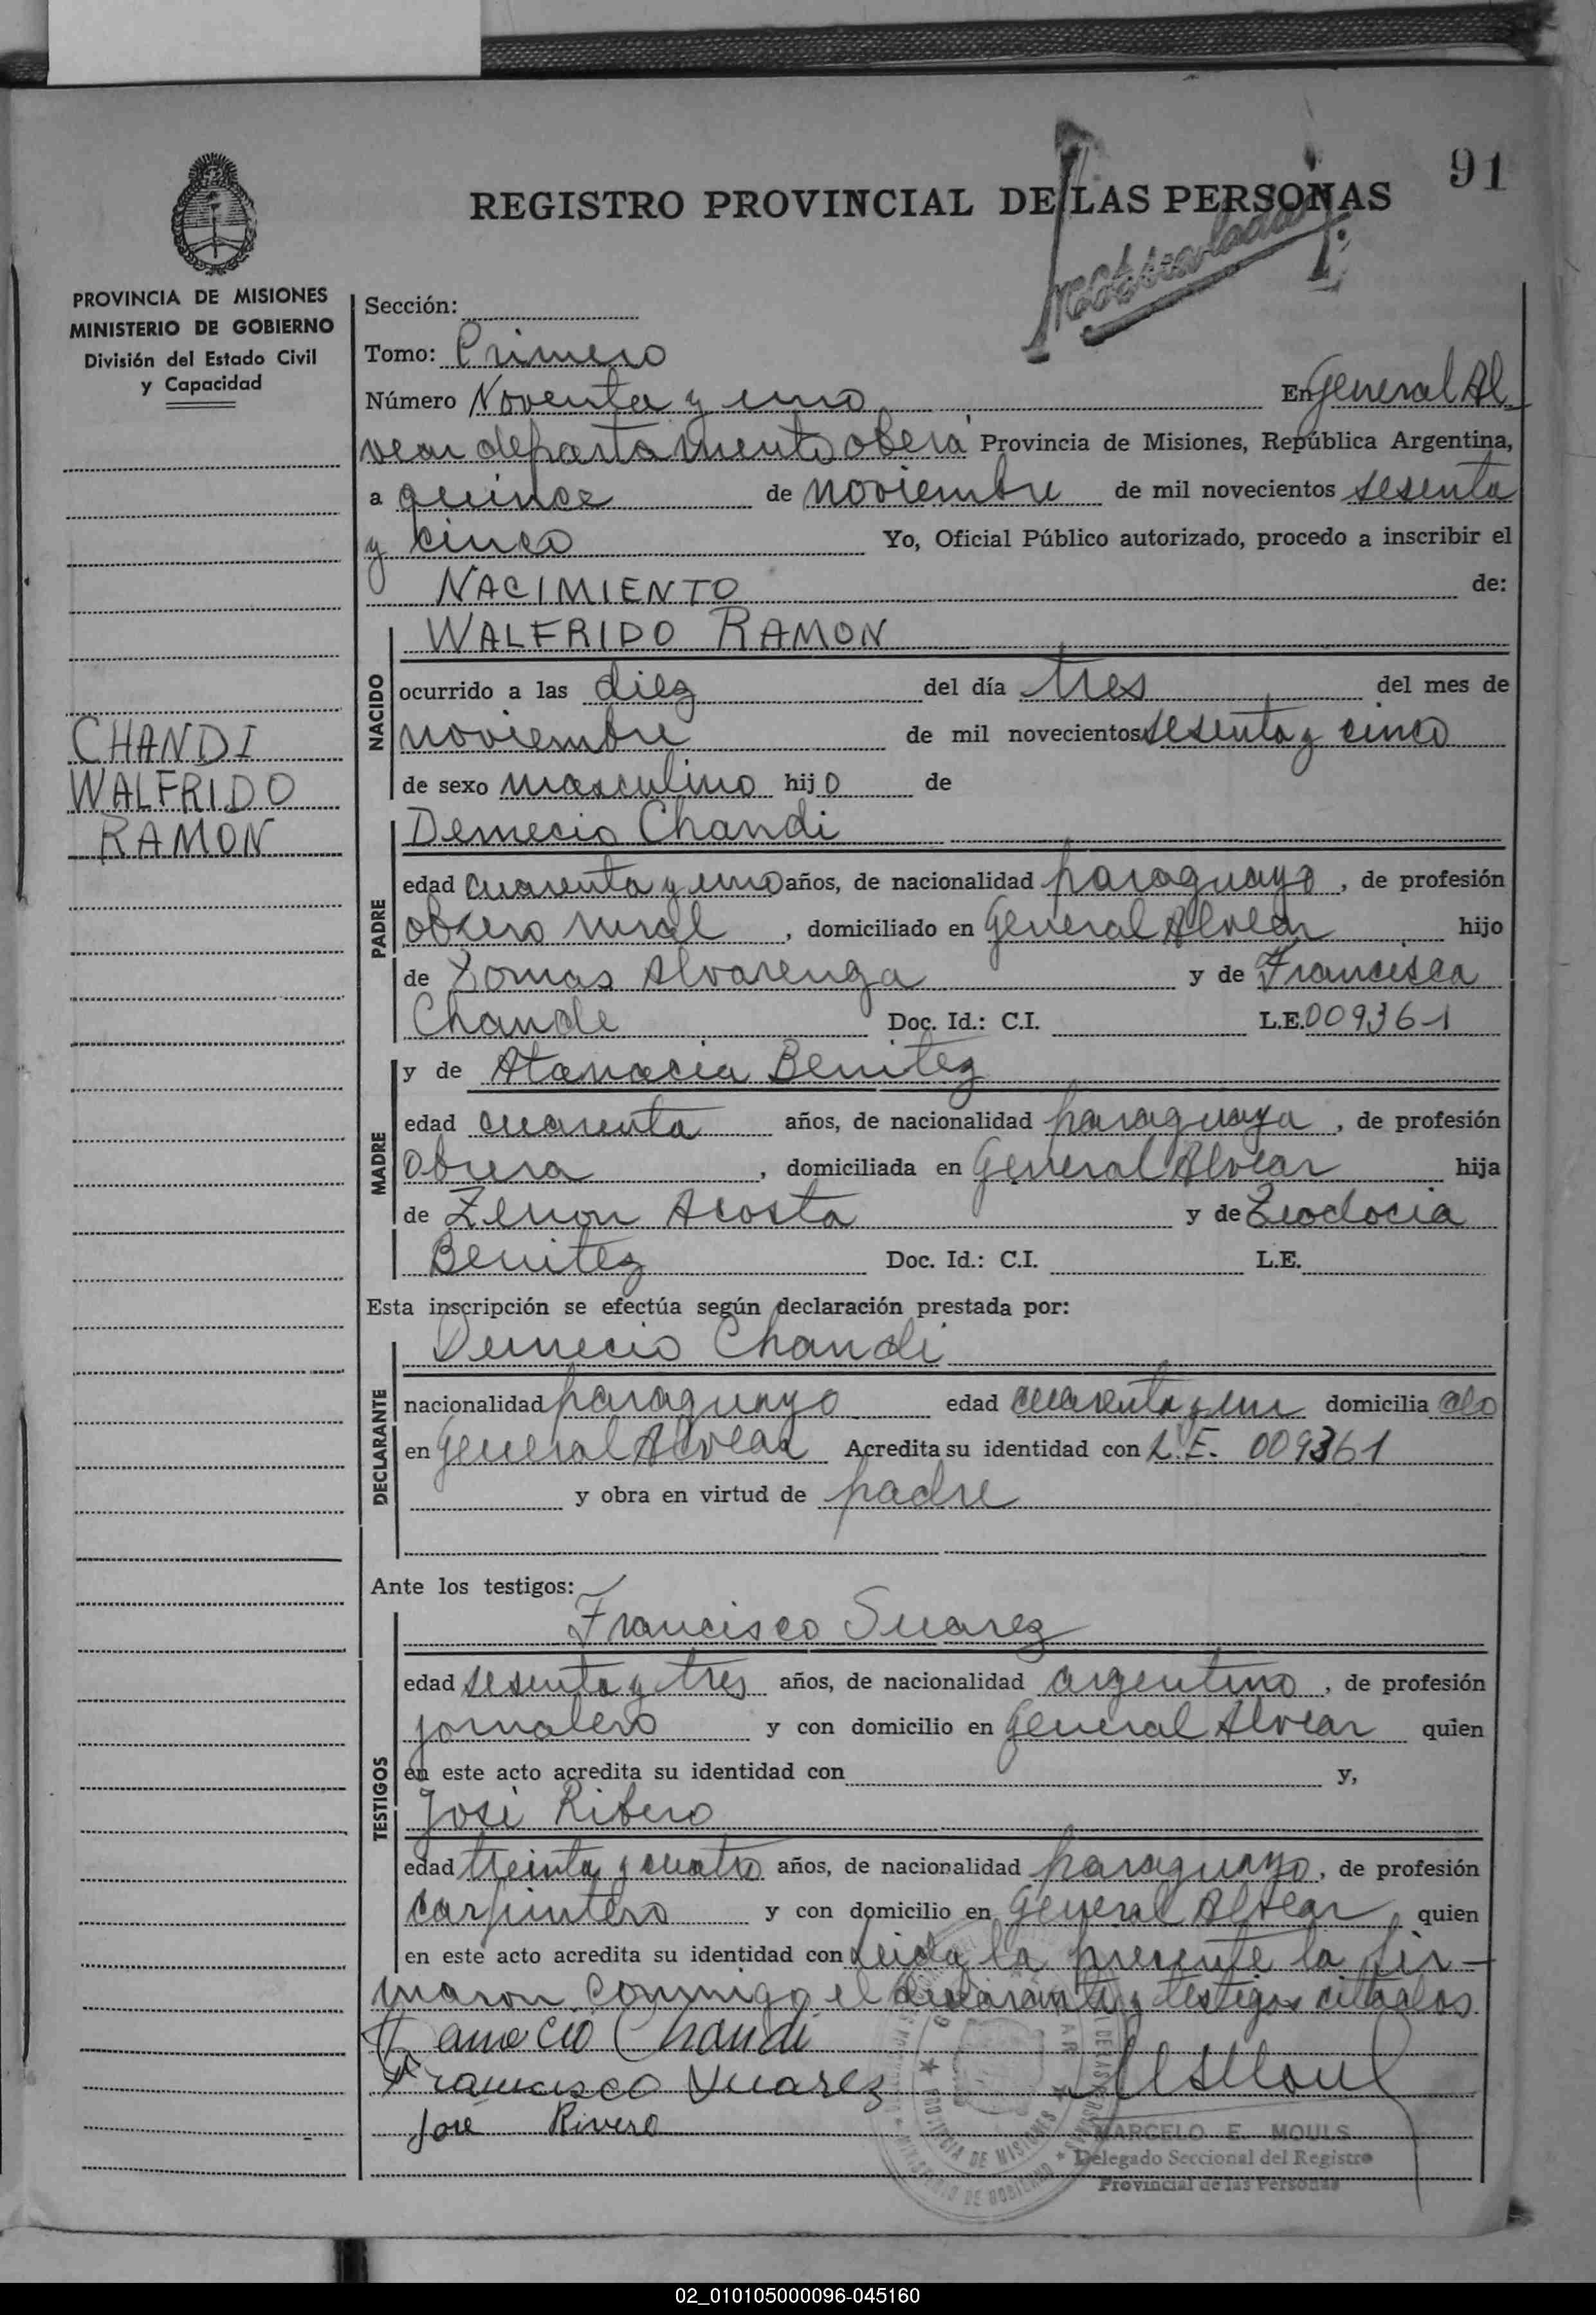 91
REGISTRO PROVINCIAL DE LAS PERSONAS
PROVINCIA DE MISIONES
MINISTERIO DE GOBIERNO
División del Estado Civil
y Capacidad
CHANDI
WALFRIDO
RAMON
Sección:
Tomo: Primero
Número Noventa y uno En General Al
vear departamento oberá Provincia de Misiones, República Argentina,
a quince de noviembre de mil novecientos sesenta
y cinco Yo, Oficial Público autorizado, procedo a inscribir el
NACIMIENTO de:
NACIDO
WALFRIDO RAMON
ocurrido a las diez del día tres del mes de
noviembre de mil novecientos sesenta y cinco
de sexo masculino hijo de
PADRE
Demecio Chandi
edad cuarenta y uno años, de nacionalidad paraguayo, de profesión
obrero rural, domiciliado en General Alvear hijo
de Tomas Alvarenga y de Francisca
Chande Doc. Id.: C.I. L.E. 009361
MADRE
y de Atanacia Benitez
edad cuarenta años, de nacionalidad paraguaya, de profesión
Obrera, domiciliada en General Alvear hija
de Zenon Acosta y de Leodocia
Benitez Doc. Id.: C.I. L.E.
Esta inscripción se efectúa según declaración prestada por:
DECLARANTE
Demecio Chandi
nacionalidad paraguayo edad cuarenta y un domicilia do
en General Alvear Acredita su identidad con L.E. 009361
y obra en virtud de padre
Ante los testigos:
TESTIGOS
Francisco Suarez
edad sesenta y tres años, de nacionalidad argentino, de profesión
jornalero y con domicilio en General Alvear quien
en este acto acredita su identidad con y,
José Ribero
edad treinta y cuatro años, de nacionalidad paraguayo, de profesión
carpintero y con domicilio en General Alvear, quien
en este acto acredita su identidad con Leida la presente la fir-
maron conmigo el declarante y testigos citados.
Chandi
Francisco Suarez
José Rivero
MARCELO E. MOULS
Delegado Seccional del Registro
Provincial de las Personas
PROVINCIA DE MISIONES
MINISTERIO DE GOBIERNO
02_010105000096-045160